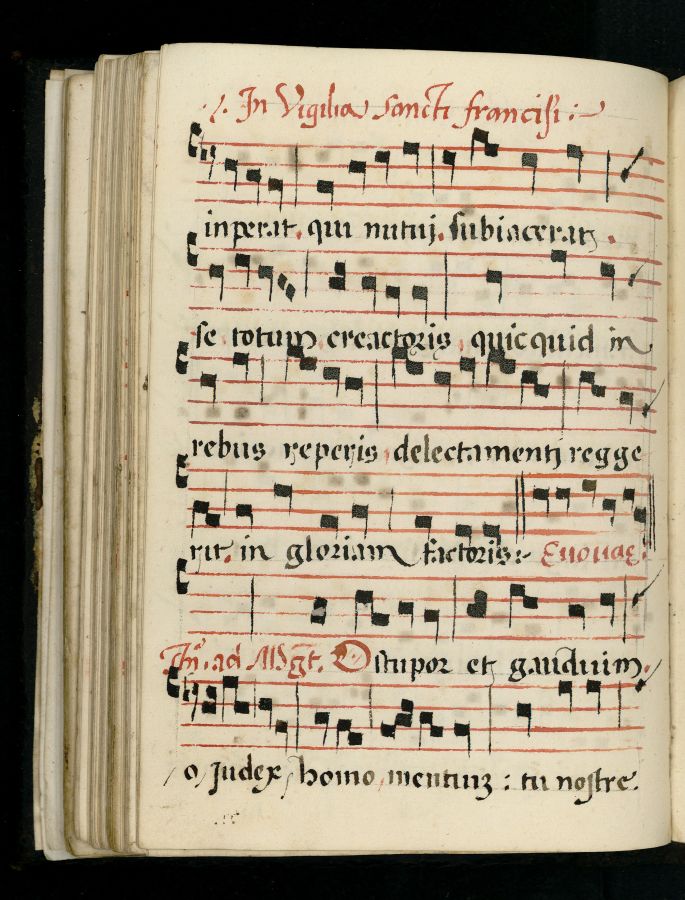 In Vigilia sancti francisi
inperat. qui nutuj. subiacerat
se totum creactoris. quicquid in
rebus reperis delectamentj regge
rit. in gloriam factoris: Euouae.
In ad Mgt. O stupor et gaudium.
o Judex homo mentiuz: tu nostre.